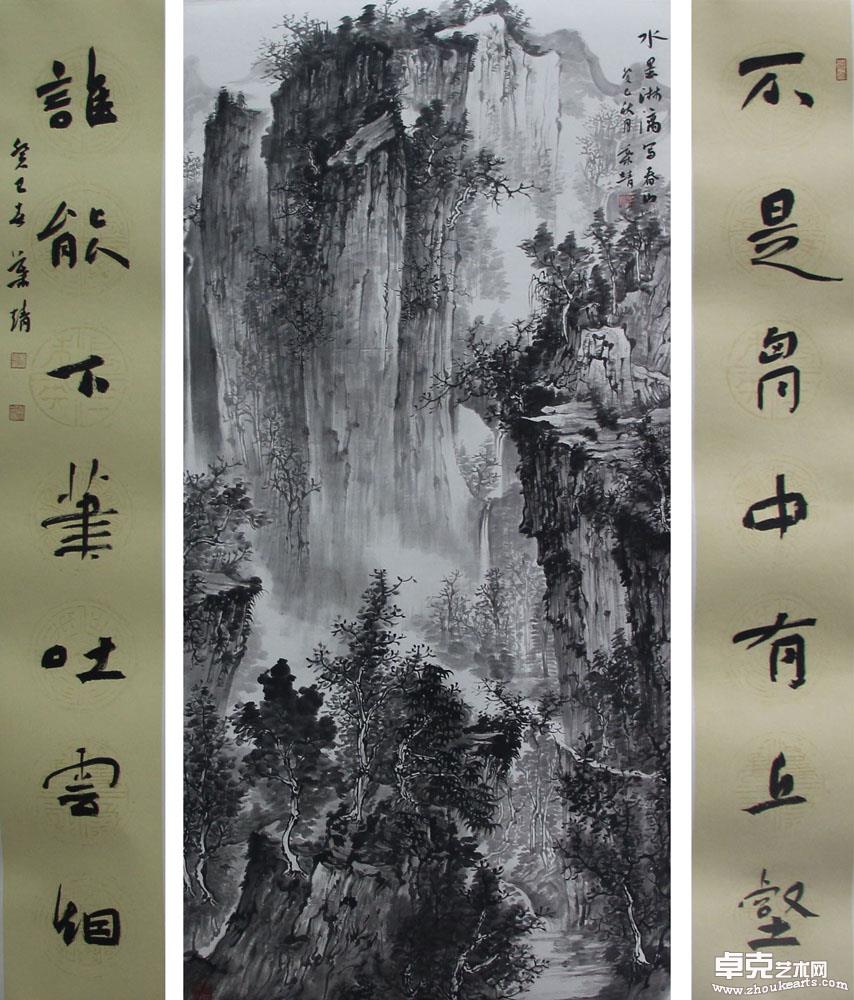 不是胷中有丘壑
水墨淋漓写春山
癸巳秋月葉靖
誰能下筆吐雲烟
癸巳春葉靖
卓克艺术网
www.zhoukearts.com